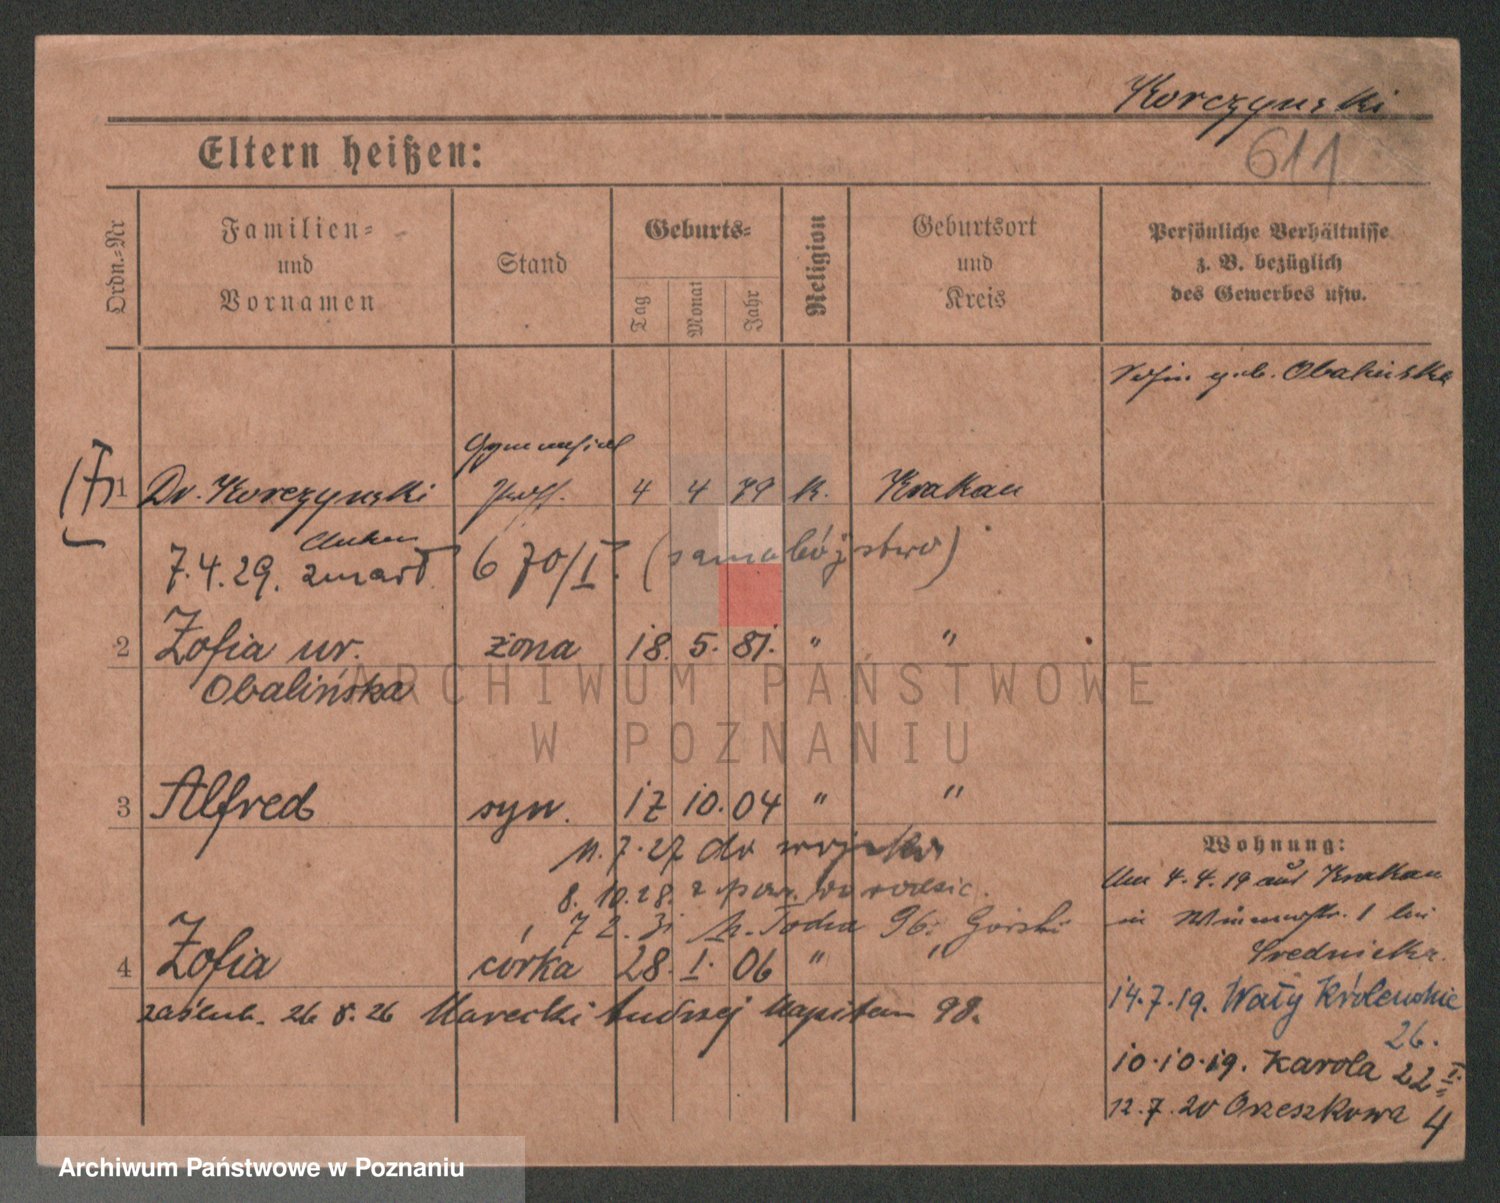 Korczynski
611
Eltern heißen:
Ordn.-Nr
Familien-
und
Vornamen
Stand
Geburts-
Tag
Monat
Jahr
Religion
Geburtsort
und
Kreis
Persönliche Verhältnisse
z. B. bezüglich
des Gewerbes usw.
geb. Obalinska
Gymnasial
1 Dr. Korczynski Prof. 4 4 79 k. Krakau
7.4.29. zmarł 670/I. (samobójstwo)
2 Zofia ur. żona 18. 5. 81. " "
Obalińska
3 Alfred syn. 17 10. 04 " "
11.7.27 do wojska
8.10.28. z
7 2. 31 96. Górski
4 Zofia córka 28. I. 06 " "
zaślub. 26 8. 26 Marecki Andrzej Kapitan 98.
Wohnung:
Am 4.4.19 aus Krakau
in 1 bei
Srednicka.
14.7.19. Wały Królewskie
26.
10.10.19. Karola 22 I.
12.7.20 Orzeszkowa 4
ARCHIWUM PAŃSTWOWE
W POZNANIU
Archiwum Państwowe w Poznaniu